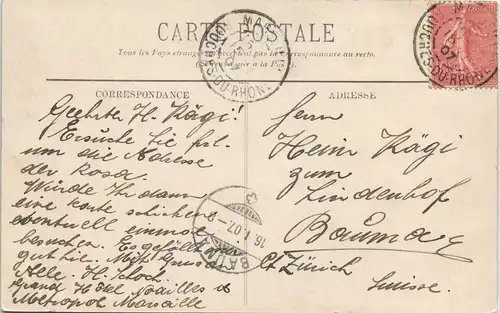 CARTE POSTALE
Tous les Pays étrangers n'acceptent pas la Correspondance au recto.
(Se renseigner à la Poste)
CORRESPONDANCE
Geehrter H. Kägi!
Ersuche Sie frl.
um die Adresse
der Rosa.
Würde Ihr dann
eine Karte schicken &
eventuell einmal
besuchen. Es gefällt mir
gut hie. Mit Gruss
Alle. H. Schoch
Grand Hôtel Noailles &
Métropol Marseille
ADRESSE
Herrn
Heinr. Kägi
zum
Lindenhof
Bauma
Ct. Zürich
Suisse.
BOUCHES-DU-RHONE
07
BOUCHES-DU-RHONE
07
BAUMA
16. I. 07.